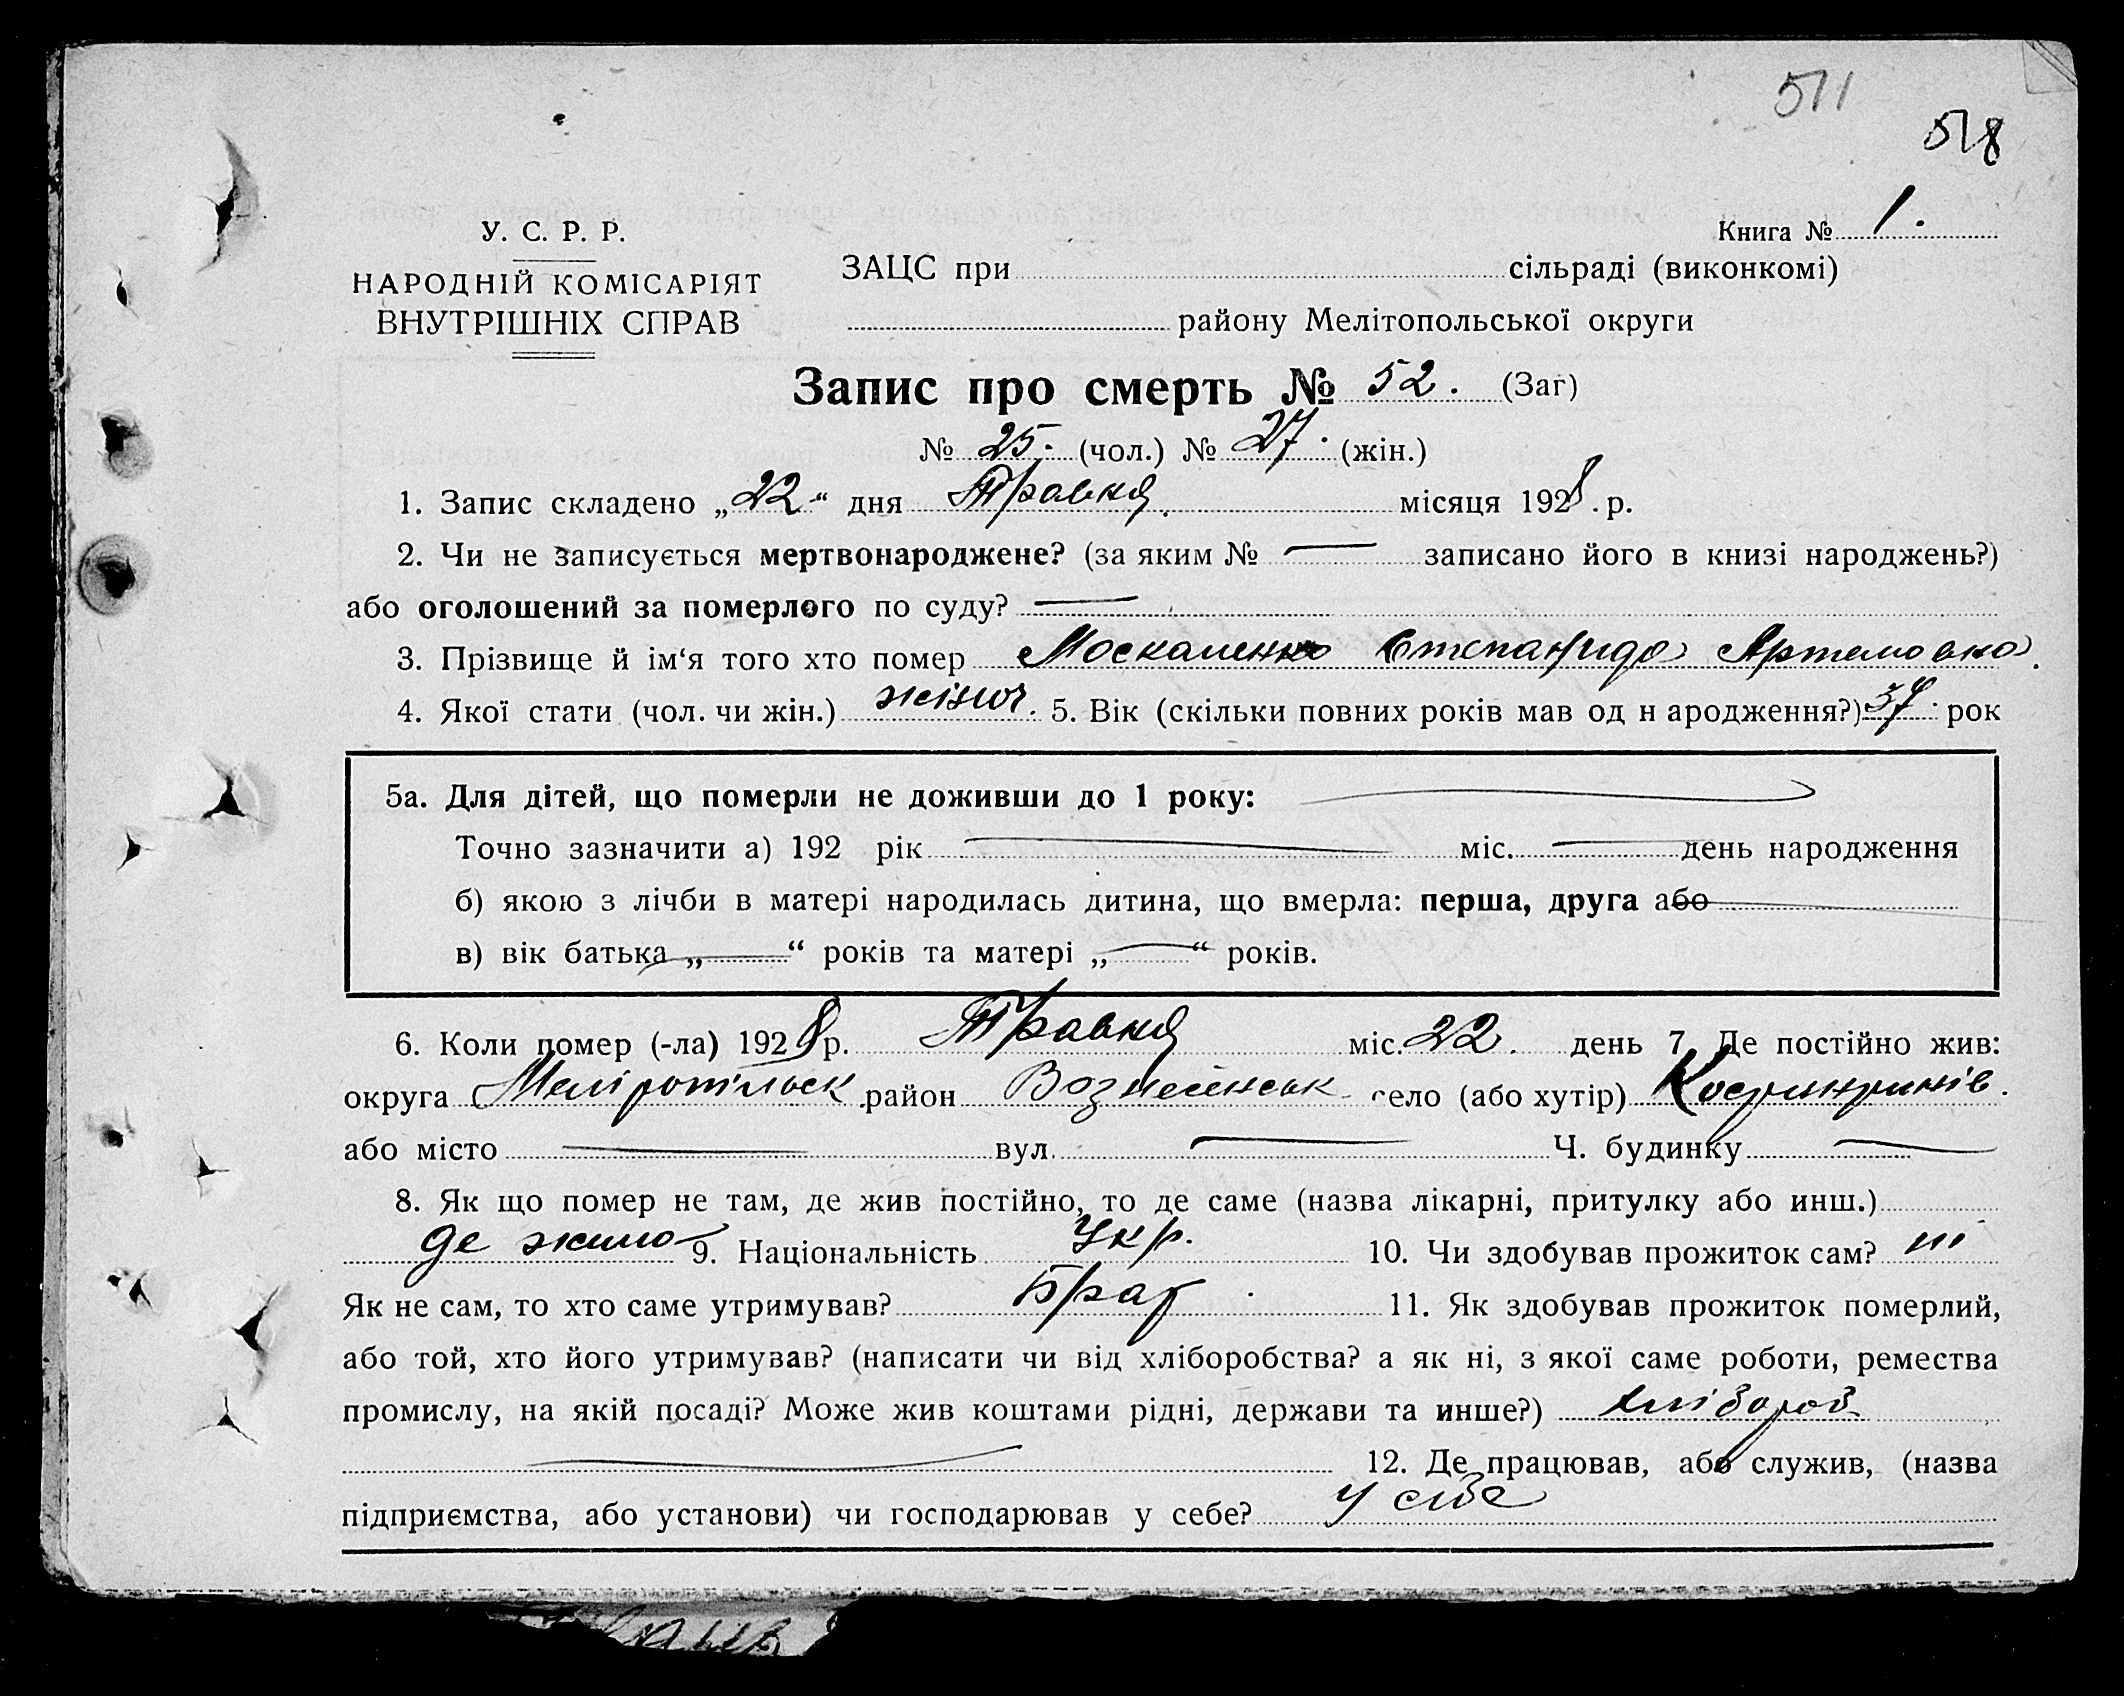 511
518
У. С. Р. Р.
НАРОДНІЙ КОМІСАРІЯТ
ВНУТРІШНІХ СПРАВ
Книга № 1.
ЗАЦС при сільраді (виконкомі)
району Мелітопольської округи
Запис про смерть № 52. (Заг)
№ 25. (чол.) № 27. (жін.)
1. Запис складено „22“ дня Травня місяця 1928. р.
2. Чи не записується мертвонароджене? (за яким № — записано його в книзі народжень?)
або оголошений за померлого по суду? —
3. Прізвище й ім‘я того хто помер Москаленко Степанида Артемовна.
4. Якої стати (чол. чи жін.) жіноч. 5. Вік (скільки повних років мав од н ародження?) 37 рок
5а. Для дітей, що померли не доживши до 1 року:
Точно зазначити а) 192 рік — міс. — день народження
б) якою з лічби в матері народилась дитина, що вмерла: перша, друга або —
в) вік батька „—“ років та матері „—“ років.
6. Коли помер (-ла) 1928 р. Травня міс. 22. день 7. Де постійно жив:
округа район Вознесенськ село (або хутір)
або місто — вул. — Ч. будинку —
8. Як що помер не там, де жив постійно, то де саме (назва лікарні, притулку або инш.)
де жила 9. Національність Укр. 10. Чи здобував прожиток сам? ні
Як не сам, то хто саме утримував? Брат 11. Як здобував прожиток померлий,
або той, хто його утримував? (написати чи від хліборобства? а як ні, з якої саме роботи, ремества
промислу, на якій посаді? Може жив коштами рідні, держави та инше?) хлібороб
— 12. Де працював, або служив, (назва
підприємства, або установи) чи господарював у себе? у себе